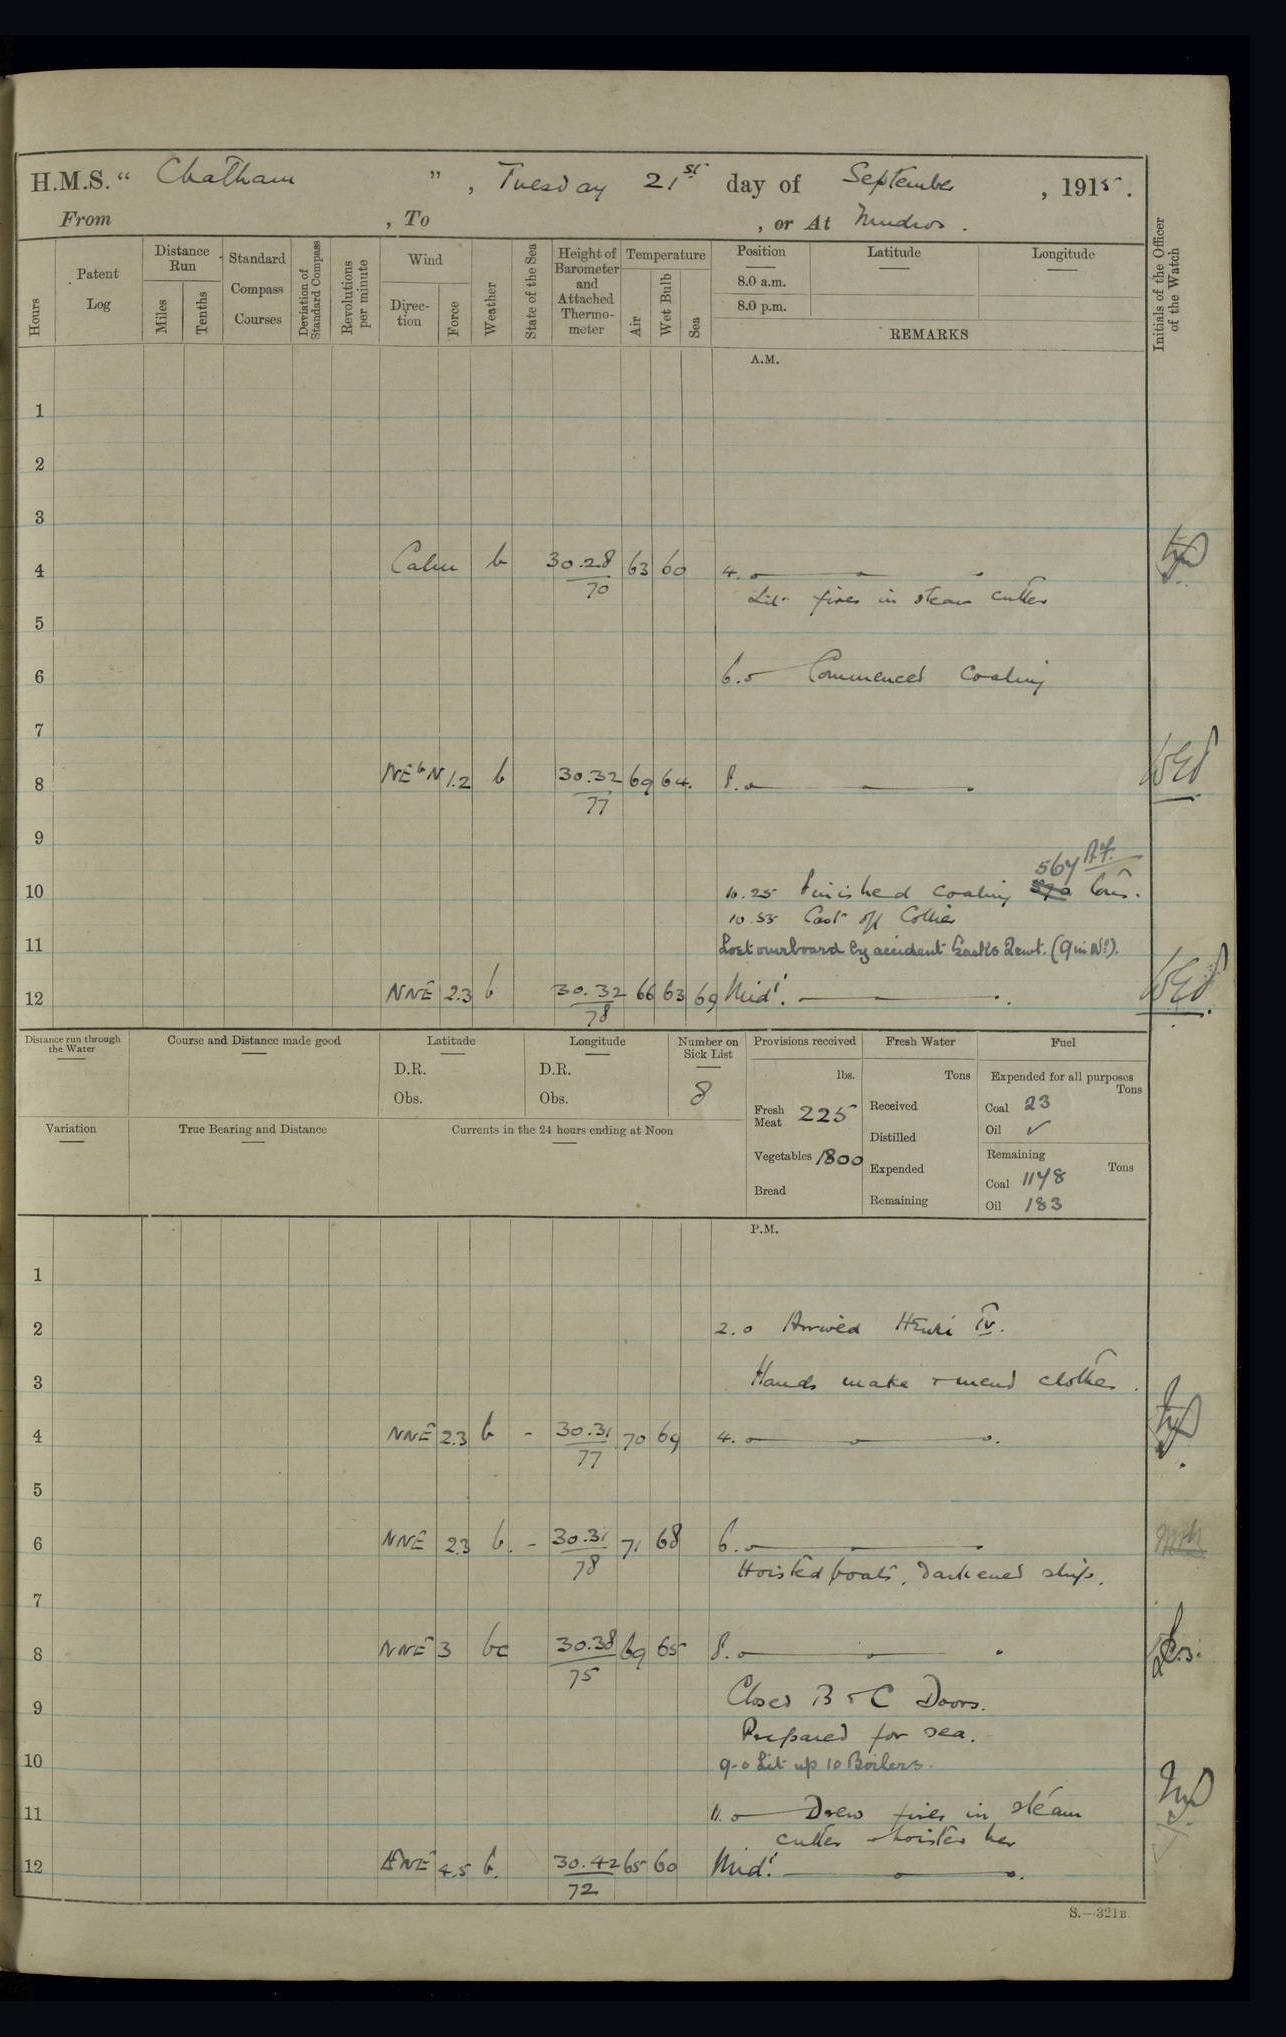 H.M.S. “ Chatham ” , Tuesday 21st day of September , 1915.
From , To , or At Mudros .
Hours
Patent Log
Distance Run
Miles
Tenths
Standard Compass Courses
Deviation of Standard Compass
Revolutions per minute
Wind
Direc-tion
Force
Weather
State of the Sea
Height of Barometer and Attached Thermo-meter
Temperature
Air
Wet Bulb
Sea
Position
8.0 a.m.
8.0 p.m.
Latitude
Longitude
REMARKS
Initials of the Officer of the Watch
A.M.
1
2
3
4 Calm b 30.28 63 60 4.0
70
Lit fires in steam cutter
5
6 6.0 Commenced Coaling
7
8 NEbN 1.2 b 30.32 69 64. 8.0
77
9
567
10 10.25 Finished coaling 570 tons.
10.55 Cast off Collier
11 Lost overboard by accident Sacks 2cwt. (9 in No).
12 NNE 2.3 b 30.32 66 63 69 Mid!
78
Distance run through the Water
Course and Distance made good
Latitude
D.R.
Obs.
Longitude
D.R.
Obs.
Number on Sick List
8
Provisions received
lbs.
Fresh Meat 225
Vegetables 1800
Bread
Fresh Water
Tons
Received
Distilled
Expended
Remaining
Fuel
Expended for all purposes
Tons
Coal 23
Oil ✓
Remaining
Tons
Coal 1148
Oil 183
Variation
True Bearing and Distance
Currents in the 24 hours ending at Noon
P.M.
1
2 2.0 Arrived Henri IV.
3 Hands make + mend clothes.
4 NNE 2.3 b - 30.31 70 69 4.0
77
5
6 NNE 2.3 b. - 30.31 71 68 6.0
78
Hoisted boats, Darkened ship.
7
8 NNE 3 bc 30.38 69 65 8.0
75
9 Closed B & C Doors.
Prepared for sea.
10 9.0 Lit up 10 Boilers.
11 11.0 Drew fires in steam
cutter + hoisted her
12 NE 4.5 b. 30.42 65 60 Mid!
72
S.—321B.